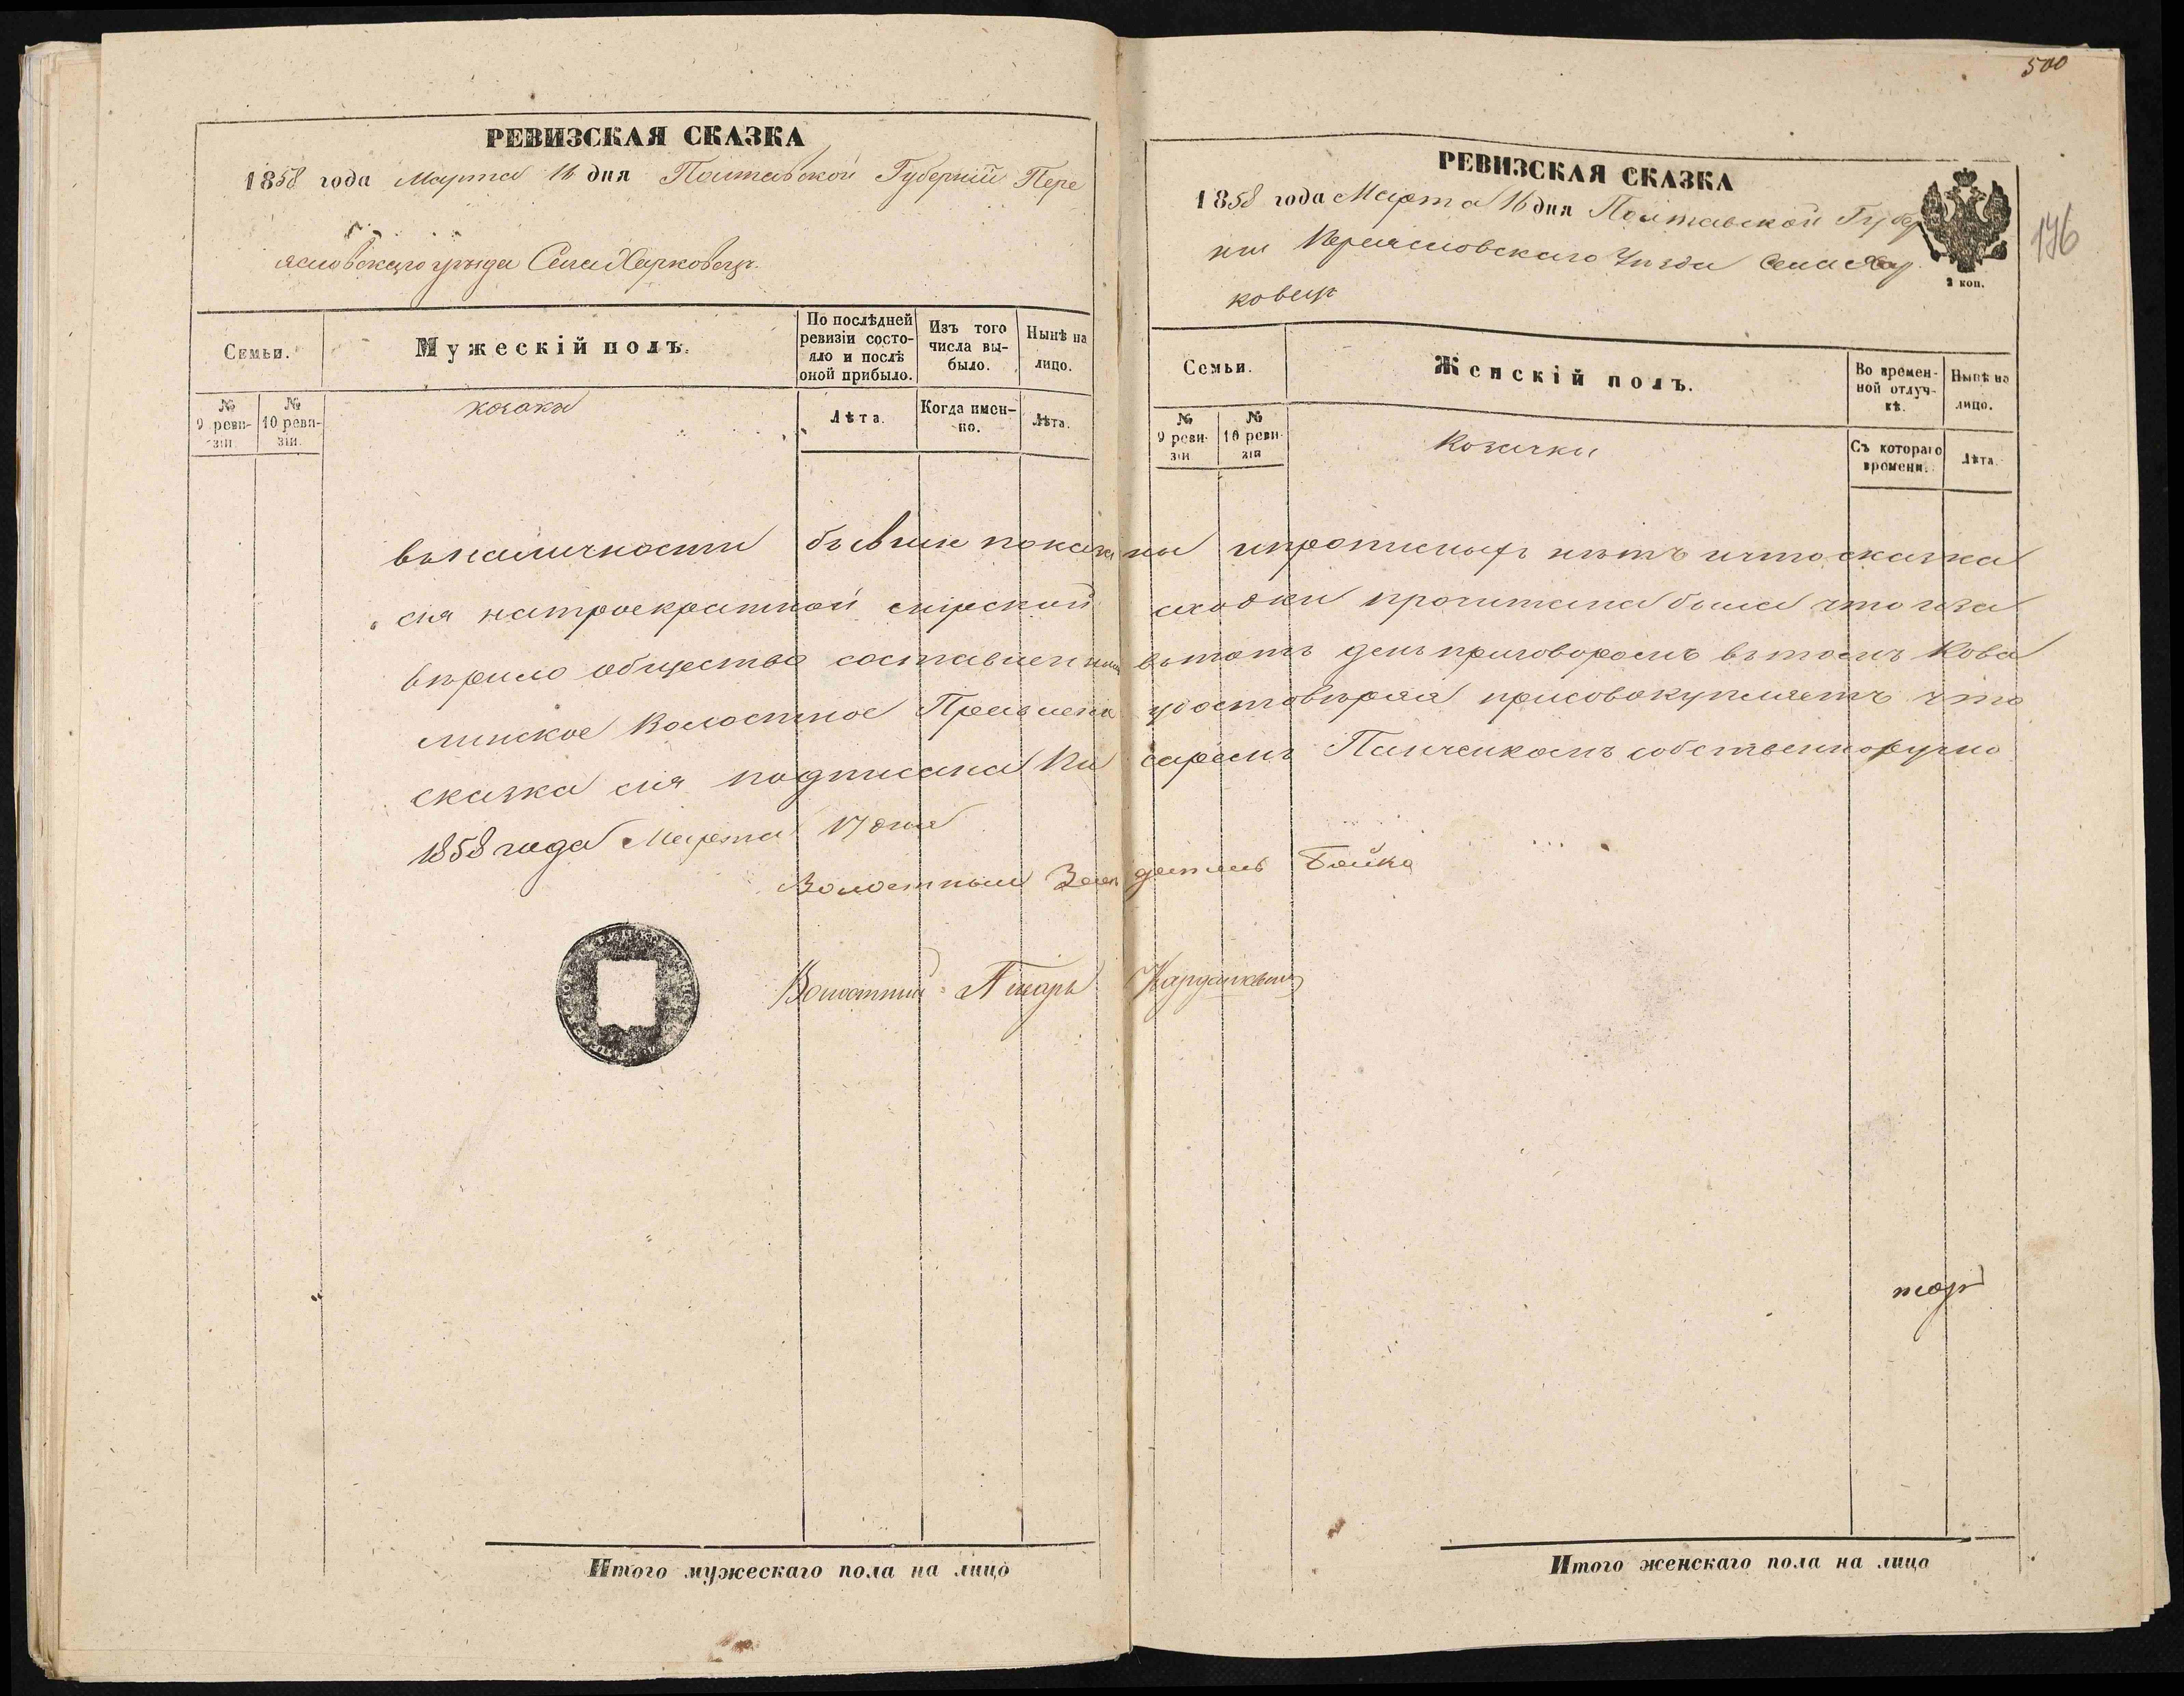 РЕВИЗСКАЯ СКАЗКА
1858 года Марта 16 дня Полтавской Губерніи Пере
яславскаго уѣзда Села Харковецъ.
Семьи.
Мужескій полъ.
По послѣдней ревизіи состояло и послѣ оной прибыло.
Изъ того числа выбыло.
Нынѣ на лицо.
№ 9 ревизіи.
№ 10 ревизіи.
козаки
Лѣта.
Когда именно.
Лѣта.
500
196
РЕВИЗСКАЯ СКАЗКА
1858 года Марта 16 дня Полтавской Губер
ніи Переяславскаго Уѣзда Села Хар
ковецъ
2 коп.
Семьи.
Женскій полъ.
Во временной отлучкѣ.
Нынѣ на лицо.
№ 9 ревизіи
№ 10 ревизія
Козачки
Съ котораго времени.
Лѣта.
въ наличности бывшіе показаны и прописныхъ нѣтъ и что сказка
сія на троекратной мірской сходки прочитана была что и за
вѣрило общество составленнымъ въ тотъ день приговоромъ въ томъ Кова
линское Волостное Правленіе удостовѣряя присовокупляетъ что
сказка сія подписана Писаремъ Панченкомъ собственноручно
1858 года Марта 17 дня
Волостный Засѣдатель Бойко
Волостный Писарь
Итого мужескаго пола на лицо
Итого женскаго пола на лицо